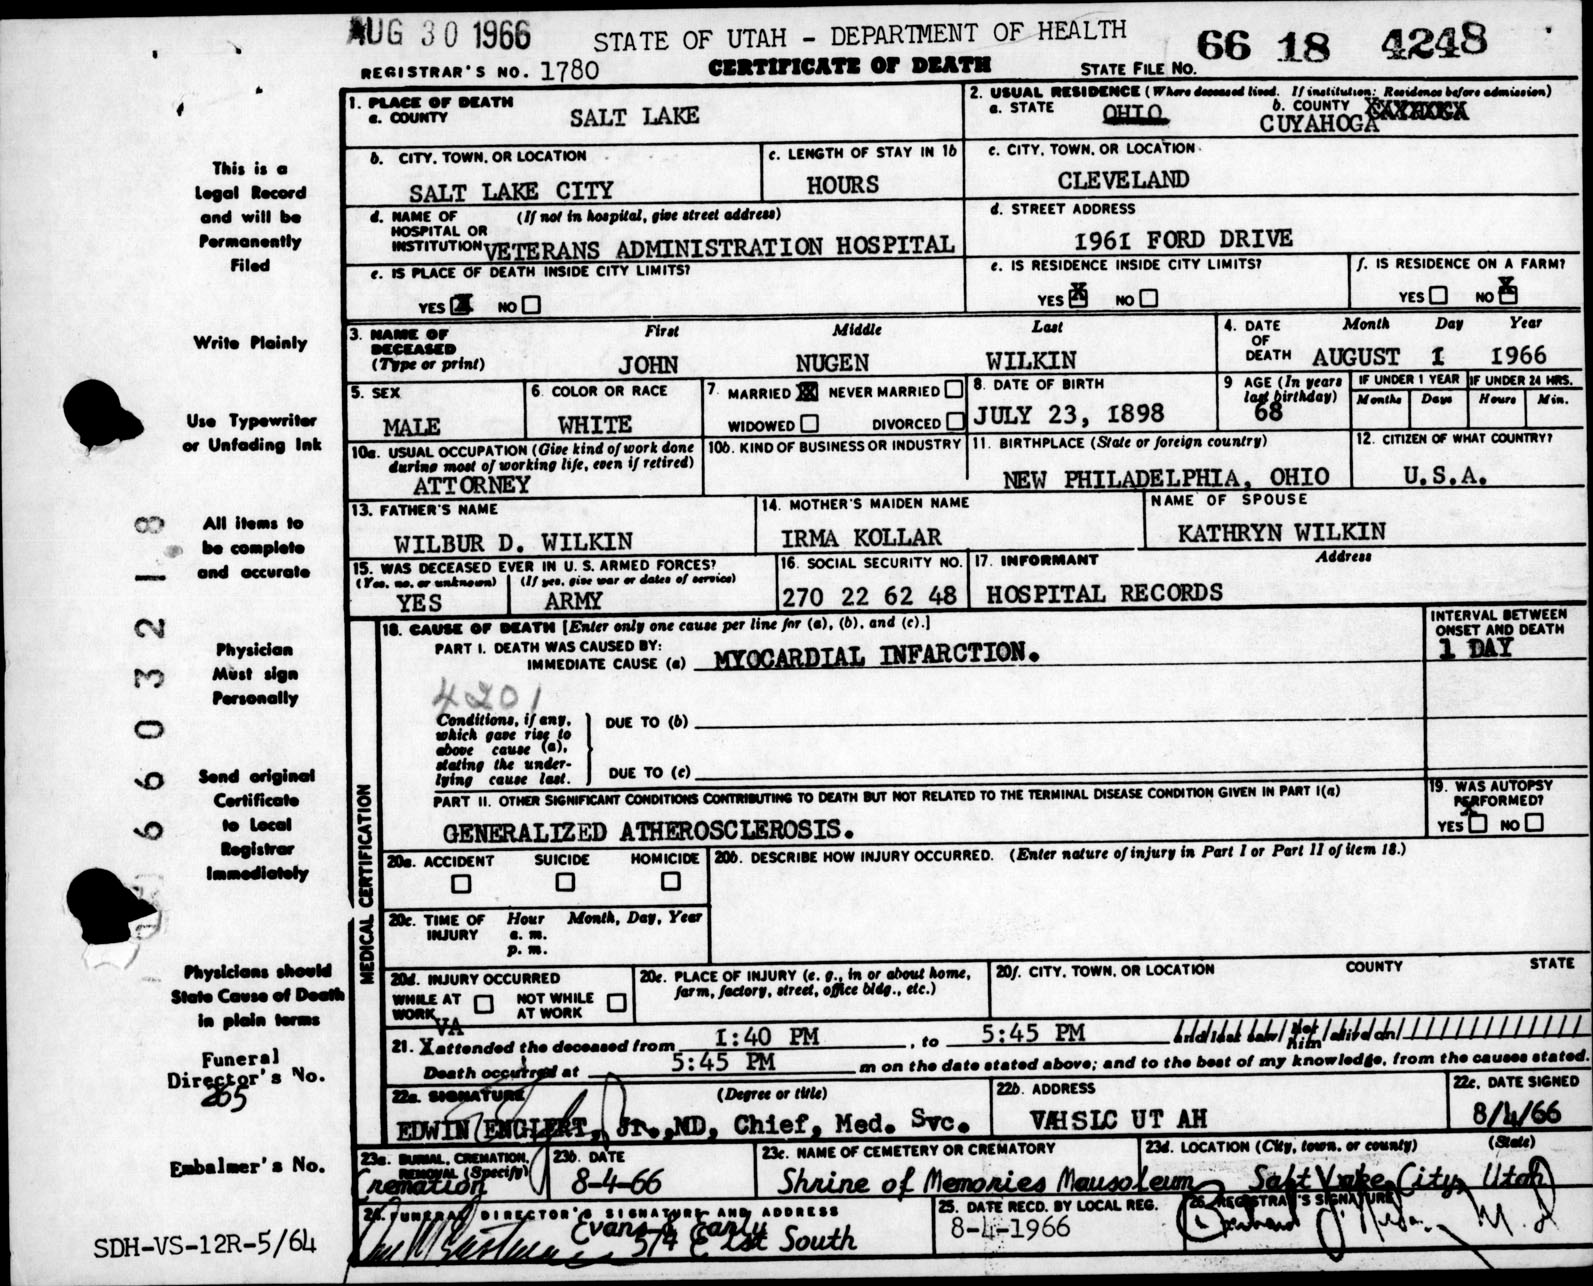 AUG 30 1966
STATE OF UTAH - DEPARTMENT OF HEALTH
66 18 4248
REGISTRAR'S NO. 1780
CERTIFICATE OF DEATH
STATE FILE NO.
1. PLACE OF DEATH
a. COUNTY
SALT LAKE
2. USUAL RESIDENCE (Where deceased lived. If institution: Residence before admission)
a. STATE
OHIO
b. COUNTY
CUYAHOGA
b. CITY, TOWN, OR LOCATION
SALT LAKE CITY
c. LENGTH OF STAY IN 1b
HOURS
c. CITY, TOWN, OR LOCATION
CLEVELAND
d. NAME OF HOSPITAL OR INSTITUTION
(If not in hospital, give street address)
VETERANS ADMINISTRATION HOSPITAL
d. STREET ADDRESS
1961 FORD DRIVE
e. IS PLACE OF DEATH INSIDE CITY LIMITS?
YES X NO
e. IS RESIDENCE INSIDE CITY LIMITS?
YES X NO
f. IS RESIDENCE ON A FARM?
YES NO X
3. NAME OF DECEASED
(Type or print)
First Middle Last
JOHN NUGEN WILKIN
4. DATE OF DEATH
Month Day Year
AUGUST 1 1966
5. SEX
MALE
6. COLOR OR RACE
WHITE
7. MARRIED X NEVER MARRIED
WIDOWED DIVORCED
8. DATE OF BIRTH
JULY 23, 1898
9 AGE (In years last birthday)
68
IF UNDER 1 YEAR
Months Days
IF UNDER 24 HRS.
Hours Min.
10a. USUAL OCCUPATION (Give kind of work done
during most of working life, even if retired)
ATTORNEY
10b. KIND OF BUSINESS OR INDUSTRY
11. BIRTHPLACE (State or foreign country)
NEW PHILADELPHIA, OHIO
12. CITIZEN OF WHAT COUNTRY?
U.S.A.
13. FATHER'S NAME
WILBUR D. WILKIN
14. MOTHER'S MAIDEN NAME
IRMA KOLLAR
NAME OF SPOUSE
KATHRYN WILKIN
15. WAS DECEASED EVER IN U. S. ARMED FORCES?
(Yes, no, or unknown) (If yes, give war or dates of service)
YES ARMY
16. SOCIAL SECURITY NO.
270 22 62 48
17. INFORMANT
Address
HOSPITAL RECORDS
MEDICAL CERTIFICATION
18. CAUSE OF DEATH [Enter only one cause per line for (a), (b), and (c).]
PART I. DEATH WAS CAUSED BY:
IMMEDIATE CAUSE (a) MYOCARDIAL INFARCTION.
INTERVAL BETWEEN ONSET AND DEATH
1 DAY
4201
Conditions, if any,
which gave rise to
above cause (a),
stating the under-
lying cause last.
DUE TO (b)
DUE TO (c)
PART II. OTHER SIGNIFICANT CONDITIONS CONTRIBUTING TO DEATH BUT NOT RELATED TO THE TERMINAL DISEASE CONDITION GIVEN IN PART I(a)
GENERALIZED ATHEROSCLEROSIS.
19. WAS AUTOPSY PERFORMED?
YES X NO
20a. ACCIDENT SUICIDE HOMICIDE
20b. DESCRIBE HOW INJURY OCCURRED. (Enter nature of injury in Part I or Part II of item 18.)
20c. TIME OF INJURY
Hour Month, Day, Year
a. m.
p. m.
20d. INJURY OCCURRED
WHILE AT WORK
NOT WHILE AT WORK
20e. PLACE OF INJURY (e. g., in or about home,
farm, factory, street, office bldg., etc.)
20f. CITY, TOWN, OR LOCATION COUNTY STATE
VA
21. X attended the deceased from 1:40 PM, to 5:45 PM
Death occurred at 5:45 PM m on the date stated above; and to the best of my knowledge, from the causes stated.
22a. SIGNATURE (Degree or title)
EDWIN ENGLERT, Jr., MD, Chief, Med. Svc.
22b. ADDRESS
VAHSLC UT AH
22c. DATE SIGNED
8/4/66
23a. BURIAL, CREMATION,
REMOVAL (Specify)
Cremation
23b. DATE
8-4-66
23c. NAME OF CEMETERY OR CREMATORY
Shrine of Memories Mausoleum
23d. LOCATION (City, town, or county) (State)
Salt Lake City, Utah
24. FUNERAL DIRECTOR'S SIGNATURE AND ADDRESS
Evans & Early
574 E 1st South
25. DATE RECD. BY LOCAL REG.
8-4-1966
26. REGISTRAR'S SIGNATURE
This is a
Legal Record
and will be
Permanently
Filed
Write Plainly
Use Typewriter
or Unfading Ink
All items to
be complete
and accurate
Physician
Must sign
Personally
Send original
Certificate
to Local
Registrar
Immediately
Physicians should
State Cause of Death
in plain terms
Funeral
Director's No.
265
Embalmer's No.
SDH-VS-12R-5/64
6603218